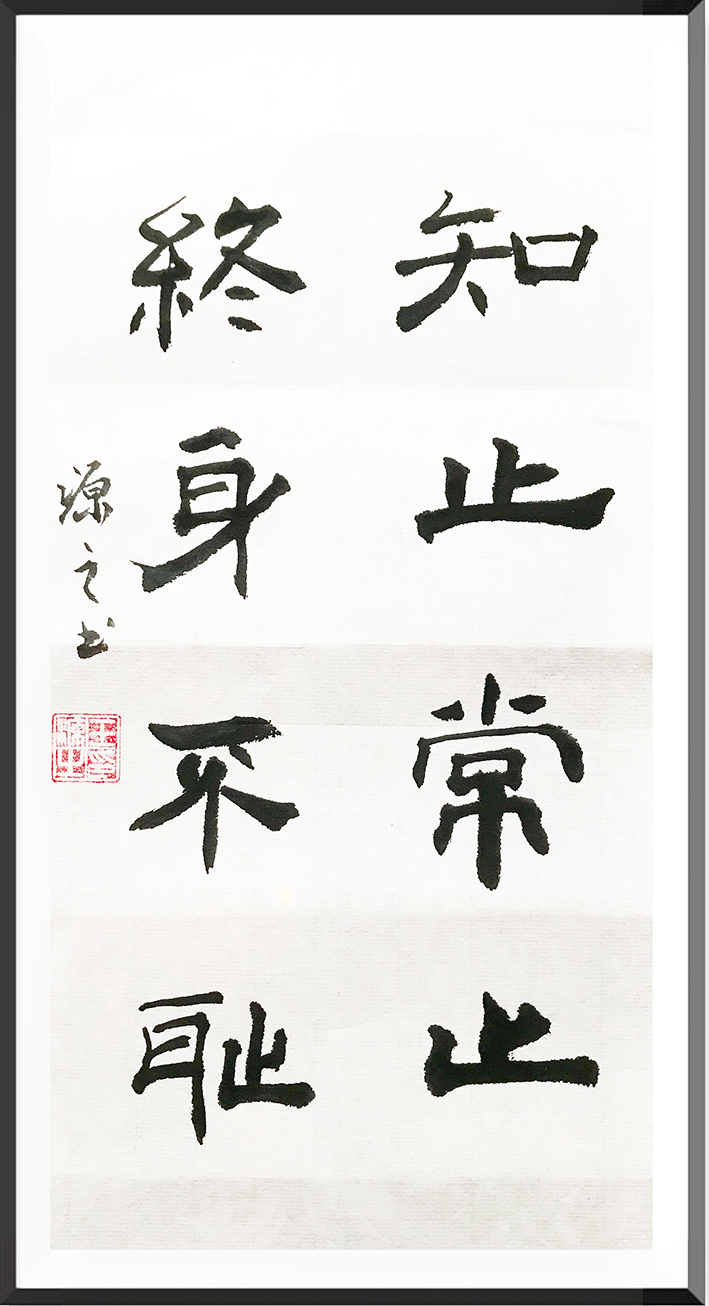 知止常止
終身不耻
源之书